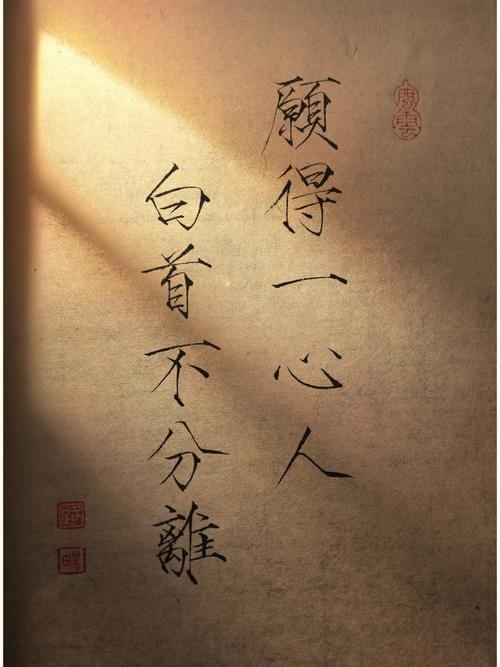 願得一心人
白首不分離